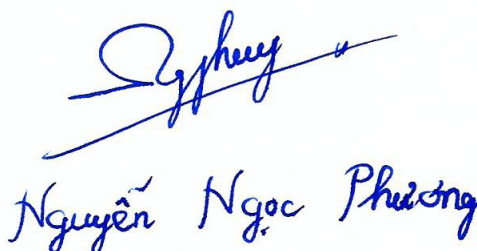 Nguyễn Ngọc Phương